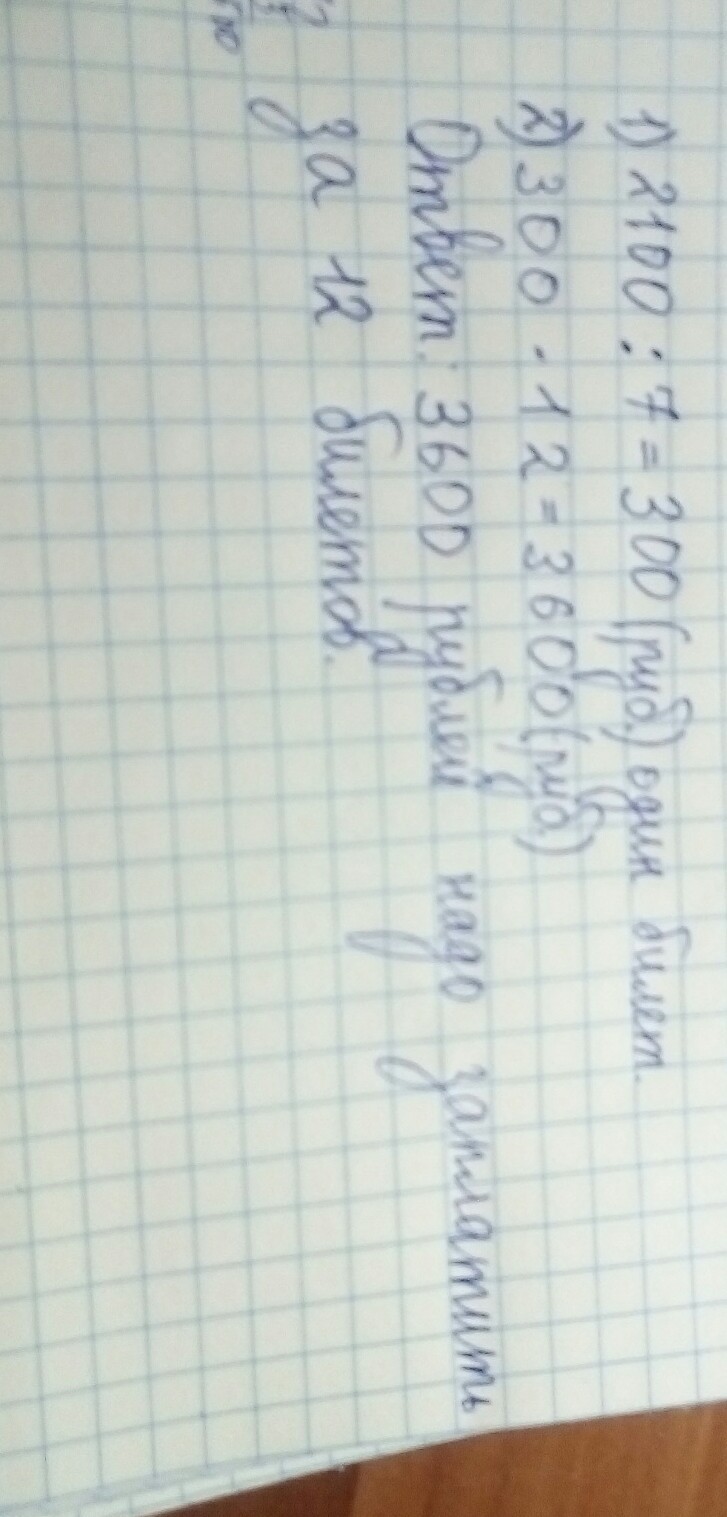 1) 2100 : 7 = 300 (руб.) один билет.
2) 300 · 12 = 3600 (руб.)
Ответ: 3600 рублей надо заплатить
за 12 билетов.